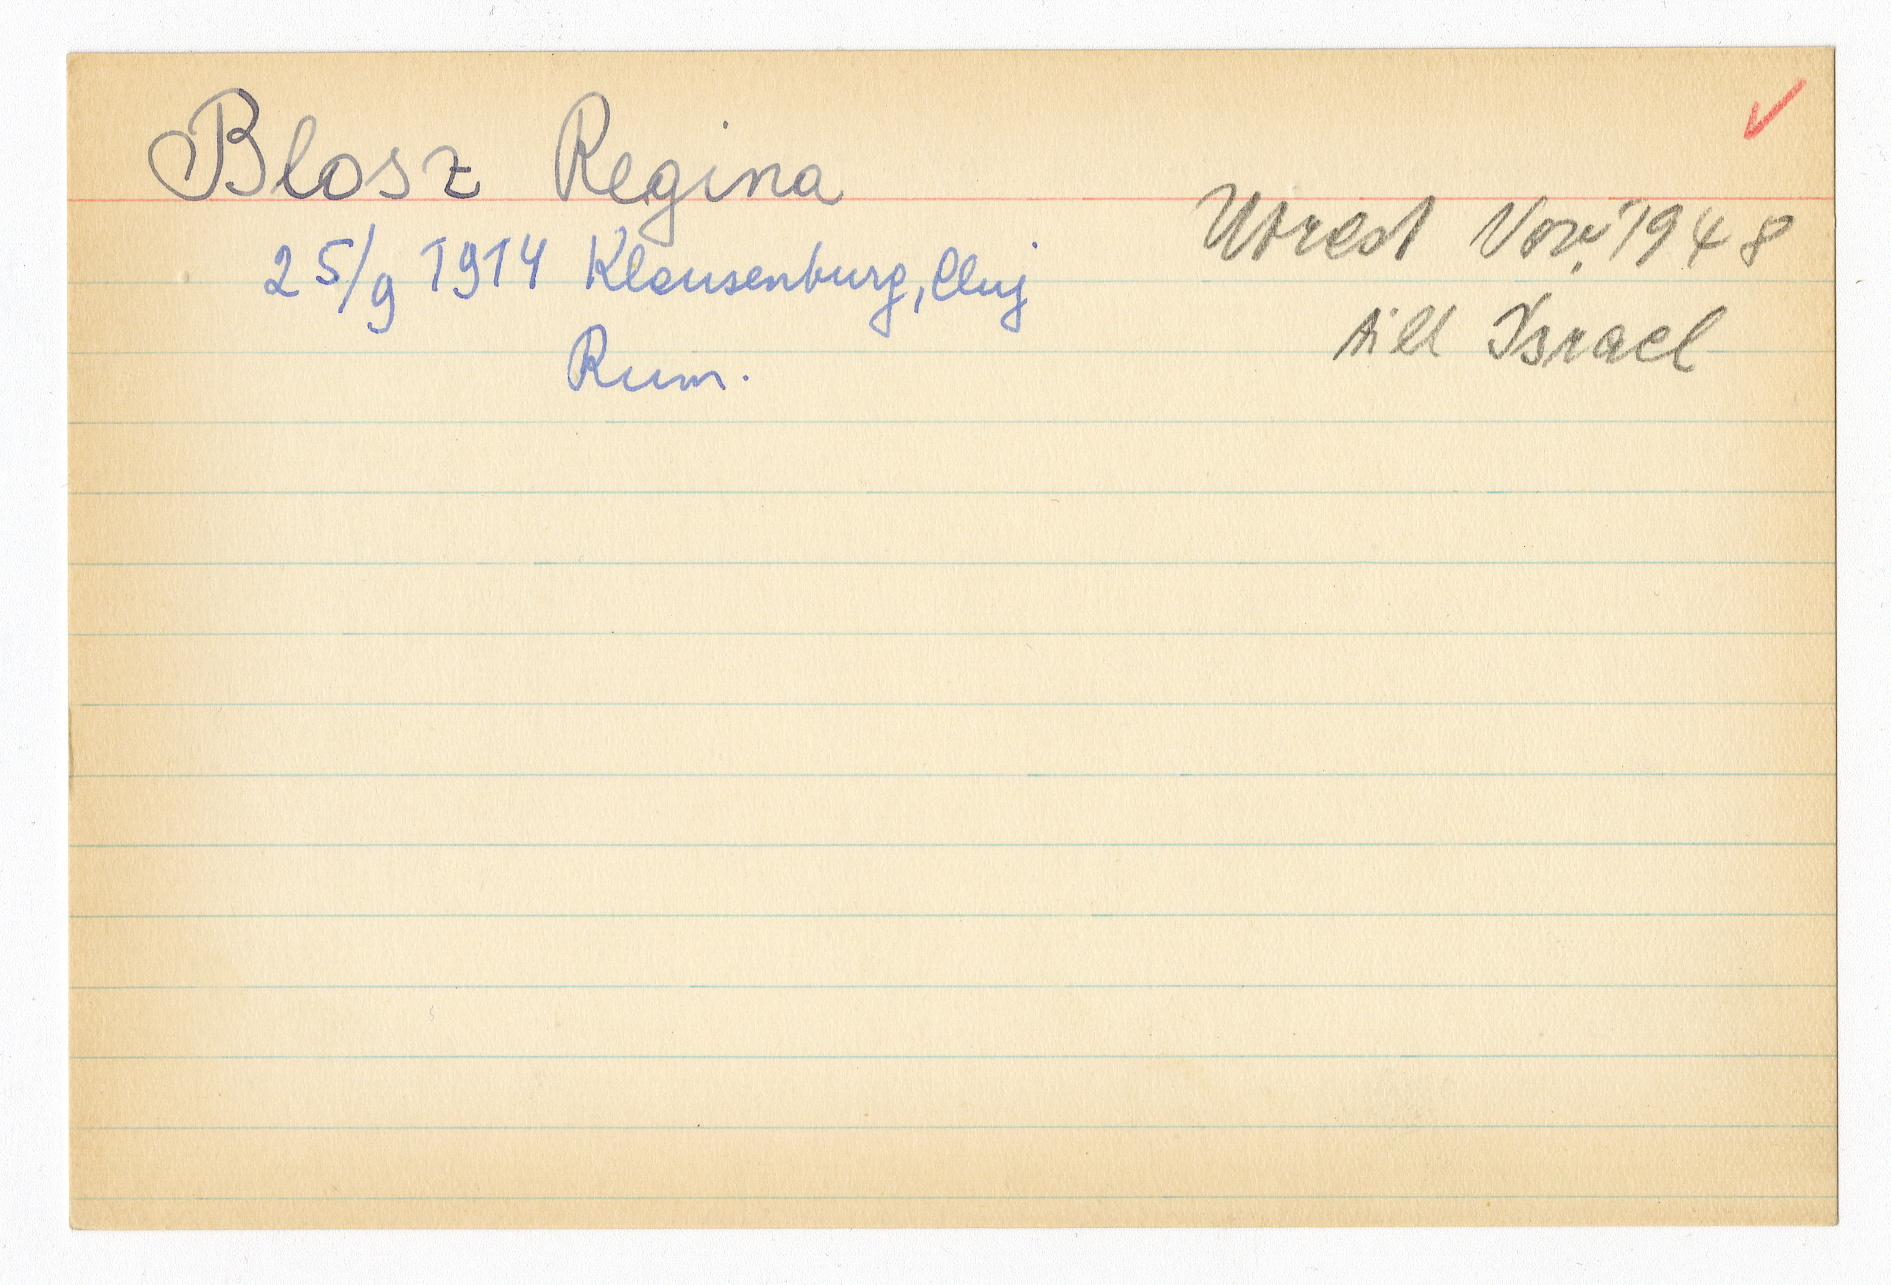 Blosz Regina
Utrest Nov. 1948
25/9 1914 Klausenburg, Cluj
till Israel
Rum.